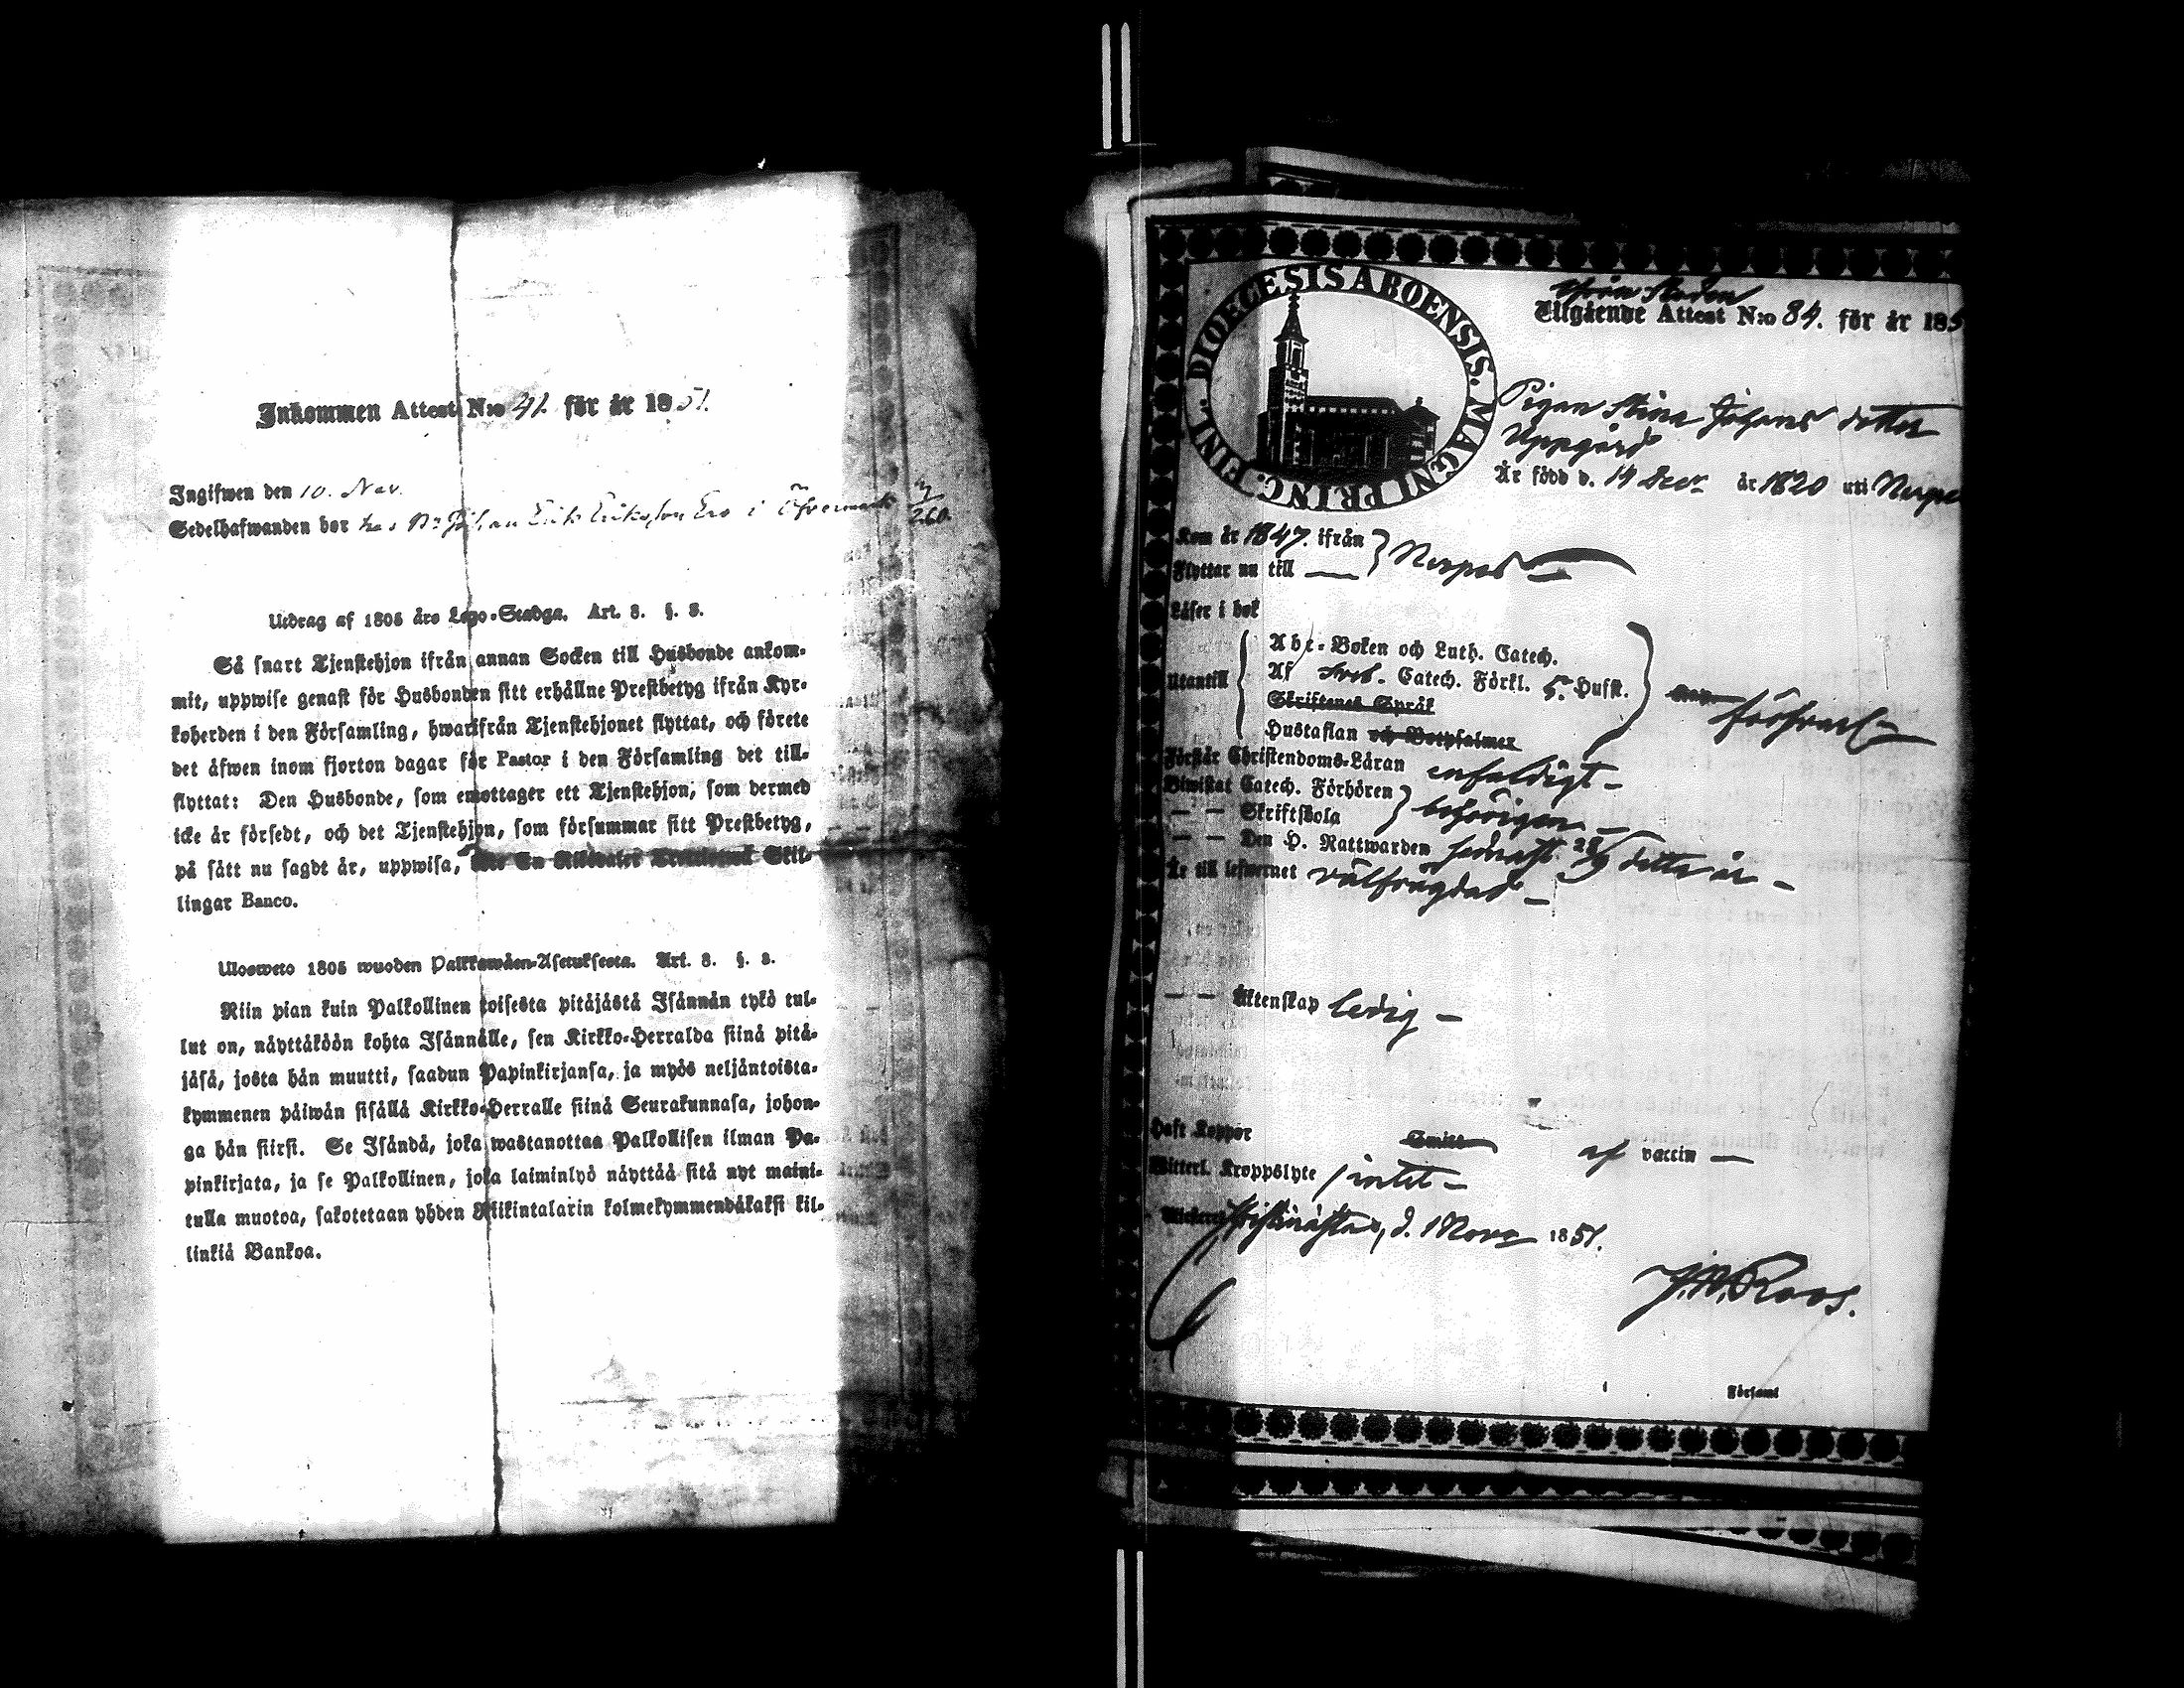 Inkommen Attest N:o 41. för år 1851.
Ingifwen den 10. Nov.
Sedelhafwanden bor hos Bn Johan Erik Eriksson Ers i Öfvermark
260.
Utdrag af 1805 års Lego-Stadga. Art. 3. §. 3.
Så snart Tjenstehjon ifrån annan Socken till Husbonde ankom-
mit, uppwise genast för Husbonden sitt erhållne Prestbetyg ifrån Kyr-
koherden i den Församling, hwarifrån Tjenstehjonet flyttat, och förete
det äfwen inom fjorton dagar för Pastor i den Församling det till-
flyttat: Den Husbonde, som emottager ett Tjenstehjon, som dermed
icke är försedt, och det Tjenstehjon, som försummar sitt Prestbetyg,
på sätt nu sagdt är, uppwisa, En Riksdaler Skil-
lingar Banco.
Ulosweto 1805 wuoden Palkkawäen-Asetuksesta. Art. 3. §. 3.
Niin pian kuin Palkollinen toisesta pitäjästä Isännän tykö tul-
lut on, näyttäköön kohta Isännälle, sen Kirkko-Herralda siinä pitä-
jäsä, josta hän muutti, saadun Papinkirjansa, ja myös neljäntoista-
kymmenen päiwän sisällä Kirkko-Herralle siinä Seurakunnasa, johon-
ga hän siirsi. Se Isändä, joka wastanottaa Palkollisen ilman Pa-
pinkirjata, ja se Palkollinen, joka laiminlyö näyttää sitä nyt maini-
tulla muotoa, sakotetaan yhden Riikintalarin kolmekymmendäkaksi kil-
linkiä Bankoa.
DIOECESIS ABOENSIS. MAGNI PRINC. FINL.
ifrån staden
Utgående Attest N:o 84. för år 185
Pigan Stina Johansdotter
Uppgård
Är född d. 19 Decr år 1820 uti Nerpes
Kom år 1847. ifrån
Flyttar nu till — } Nerpes —
Läser i bok
Utantill
Abc-Boken och Luth. Catech.
Af Sveb. Catech. Förkl. 5. Hufst.
Skriftenes Språk
Hustaflan och Botpsalmer
försvarl-
Förstår Christendoms-Läran enfaldigt —
Biwistat Catech. Förhören
— — Skriftskola } behörigen —
— — Den H. Nattwarden sednast 28/9 detta år —
Är till lefwernet välfrägdad —
— — Äktenskap ledig —
Haft Koppor Smitt af vaccin —
Witterl. Kroppslyte intet —
Christinestad, d. 1 Novr 1851.
J. W. Roos.
Församl